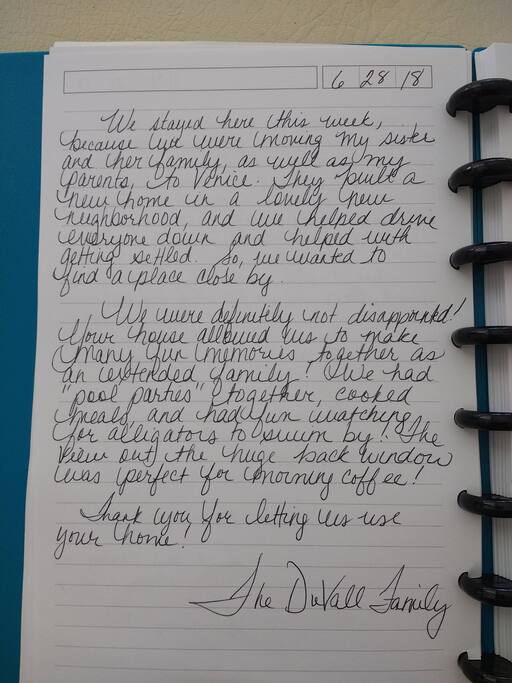 6 28 18
We stayed here this week,
because we were moving my sister
and her family, as well as my
parents, to Venice. They built a
new home in a lovely new
neighborhood, and we helped drive
everyone down and helped with
getting settled. So, we wanted to
find a place close by.
We were definitely not disappointed!
Your house allowed us to make
many fun memories together as
an extended family! We had
"pool parties" together, cooked
meals, and had fun watching
for alligators to swim by! The
view out the huge back window
was perfect for morning coffee!
Thank you for letting us use
your home!
The DuVall Family